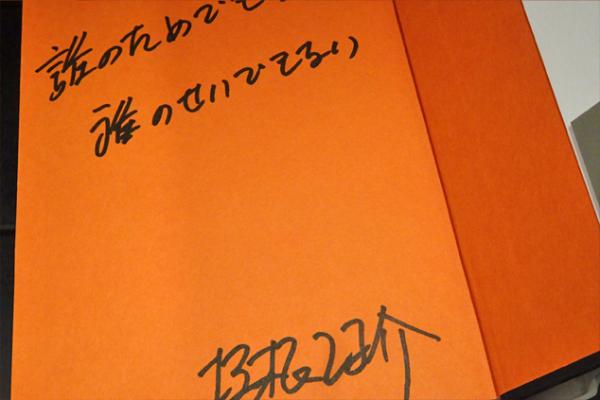 誰のためでも
誰のせいでもない